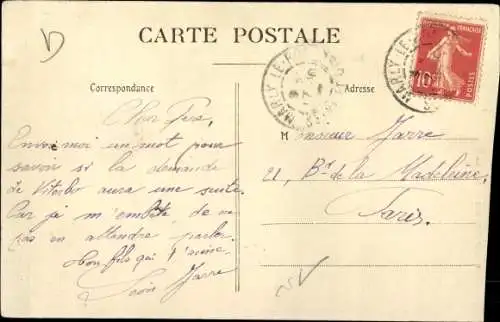 CARTE POSTALE
Correspondance
Adresse
MARLY LE-ROI
MARLY LE-
FRANÇAISE
POSTES
10
Cher Père,
Envoi moi un mot pour
savoir si la demande
de aura une suite.
Car je m'embête de ne
pas en attendre parler.
Ton fils qui t'aime.
Jarre
Monsieur Jarre
21, Bd de la Madeleine
Paris.